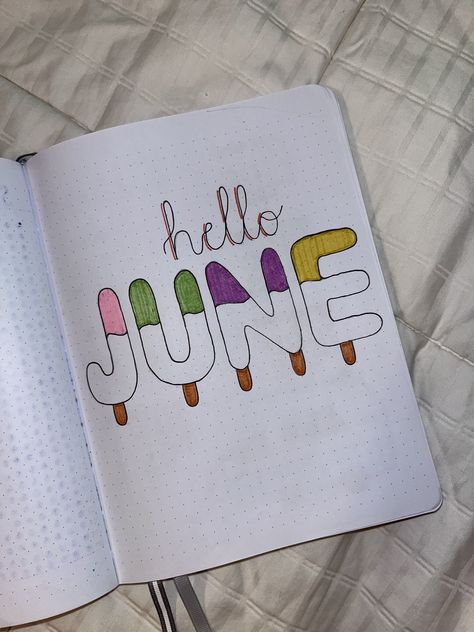 hello
JUNE